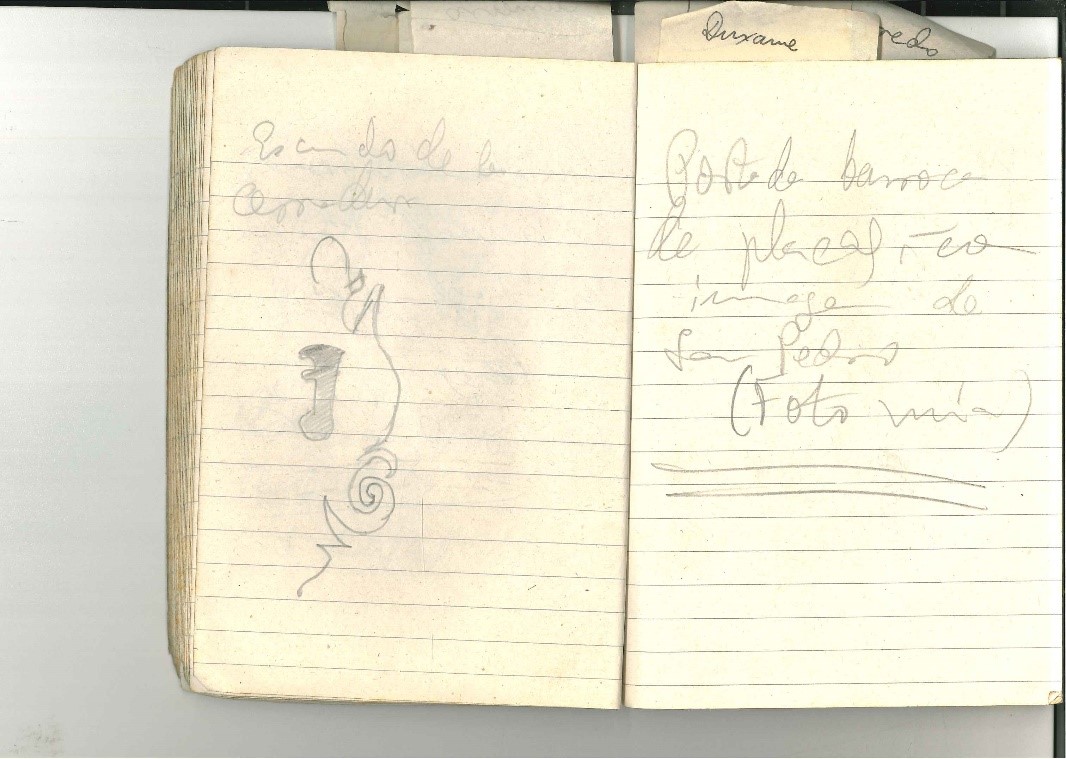 Duxame
redo
Escudo de la
cerradura
Portada barroca
de placas, con
imagen de
San Pedro
(Foto mía)